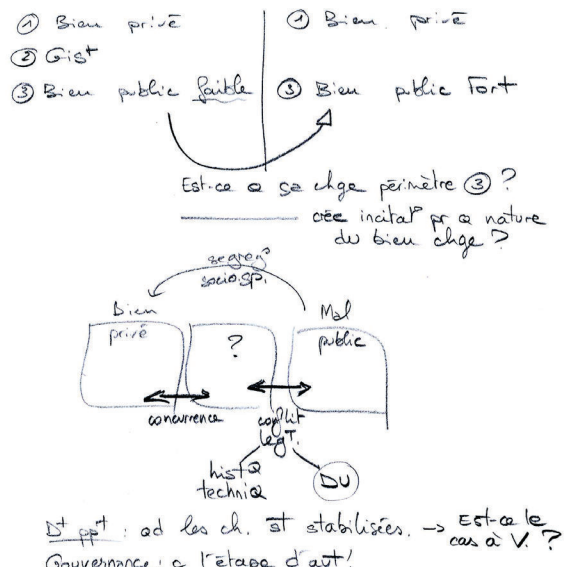 ① Bien privé
② Gist
③ Bien public faible
① Bien privé
③ Bien public Fort
Est-ce q ça chge périmètre ③ ?
crée incitat° pr q nature
du bien chge ?
segreg°
socio.sp.
Bien
privé
?
Mal
public
concurrence
conflit
legT.
histQ
techniQ
DU
D+ pp+ : qd les ch. st stabilisées. → Est-ce le
cas à V. ?
Gouvernance : c l'étape d'avt !